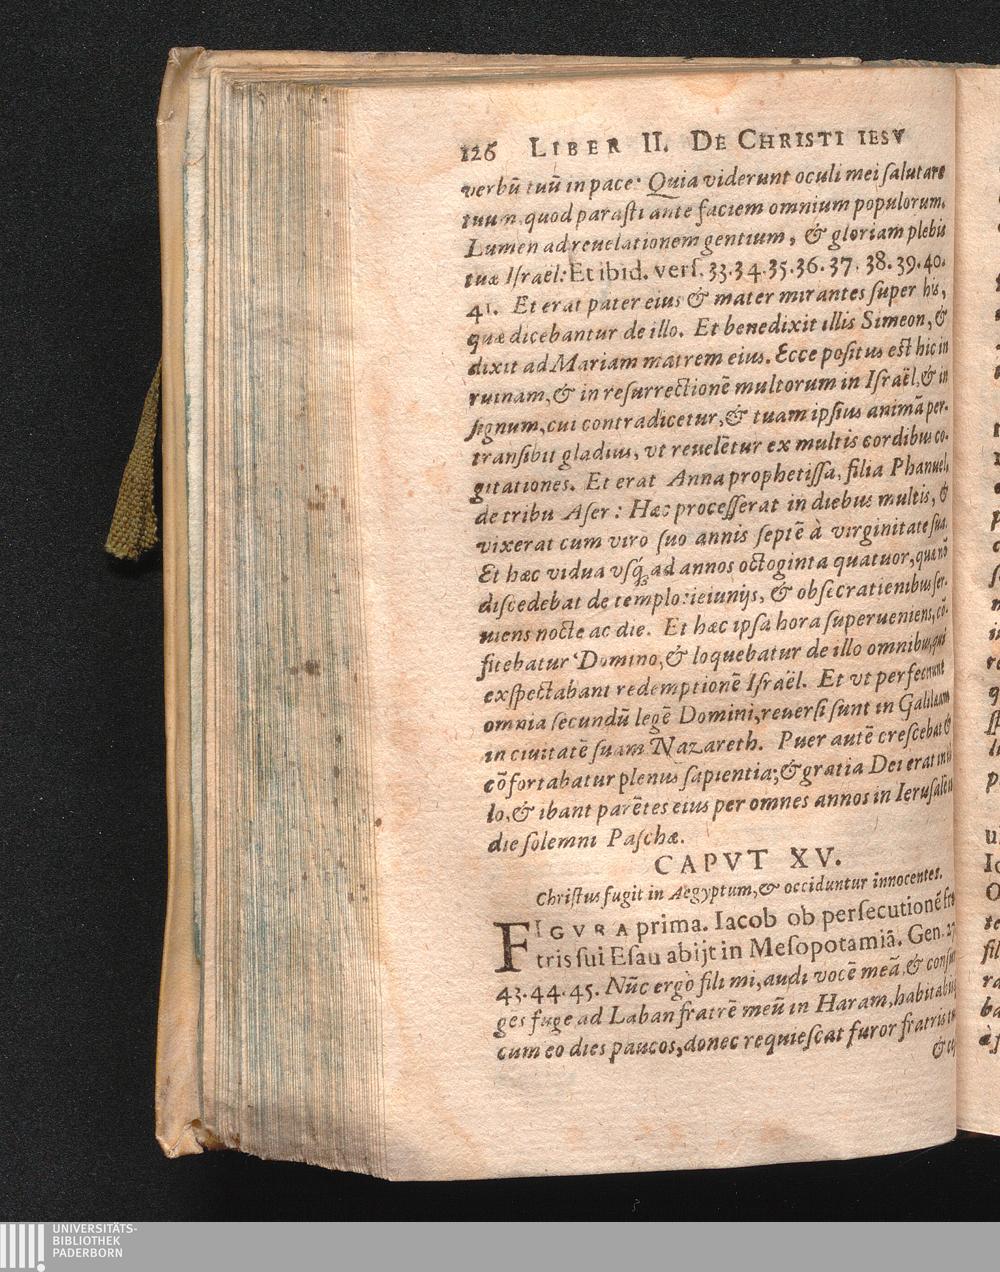 126 LIBER II. DE CHRISTI IESV
verbũ tuũ in pace: Quia viderunt oculi mei ſalutare
tuum, quod paraſti ante faciem omnium populorum.
Lumen ad reuelationem gentium, & gloriam plebis
tuæ Iſraël: Et ibid. verſ. 33.34.35.36.37. 38.39.40.
41. Et erat pater eius & mater mirantes ſuper his,
quæ dicebantur de illo. Et benedixit illis Simeon, &
dixit ad Mariam matrem eius. Ecce poſitus eſt hic in
ruinam, & in reſurrectionẽ multorum in Iſraël, & in
ſignum, cui contradicetur, & tuam ipſius animã per-
tranſibit gladius, vt reuelẽtur ex multis cordibus co-
gitationes. Et erat Anna prophetiſſa, filia Phanuel,
de tribu Aſer: Hæc proceſſerat in diebus multis, &
vixerat cum viro ſuo annis ſeptẽ à virginitate ſua.
Et hæc vidua vſq́; ad annos octoginta quatuor, quæ nõ
diſcedebat de templo: ieiunijs, & obſecrationibus ſer-
uiens nocte ac die. Et hæc ipſa hora ſuperueniens, cõ-
fitebatur Domino, & loquebatur de illo omnibus, qui
exſpectabant redemptionẽ Iſraël. Et vt perfecerunt
omnia ſecundũ legẽ Domini, reuerſi ſunt in Galilæam
in ciuitatẽ ſuam Nazareth. Puer autẽ creſcebat &
cõfortabatur plenus ſapientia; & gratia Dei erat in il-
lo, & ibant parẽtes eius per omnes annos in Ieruſalẽ in
die ſolemni Paſchæ.
CAPVT XV.
Chriſtus fugit in Aegyptum, & occiduntur innocentes.
FIGVRA prima. Iacob ob perſecutionẽ fra-
tris ſui Eſau abijt in Meſopotamiã. Gen. 27
43.44.45. Nũc ergò fili mi, audi vocẽ meã, & conſur
ges fuge ad Laban fratrẽ meũ in Haram, habitabisq́
cum eo dies paucos, donec requieſcat furor fratris tui
&
UNIVERSITÄTS-
BIBLIOTHEK
PADERBORN